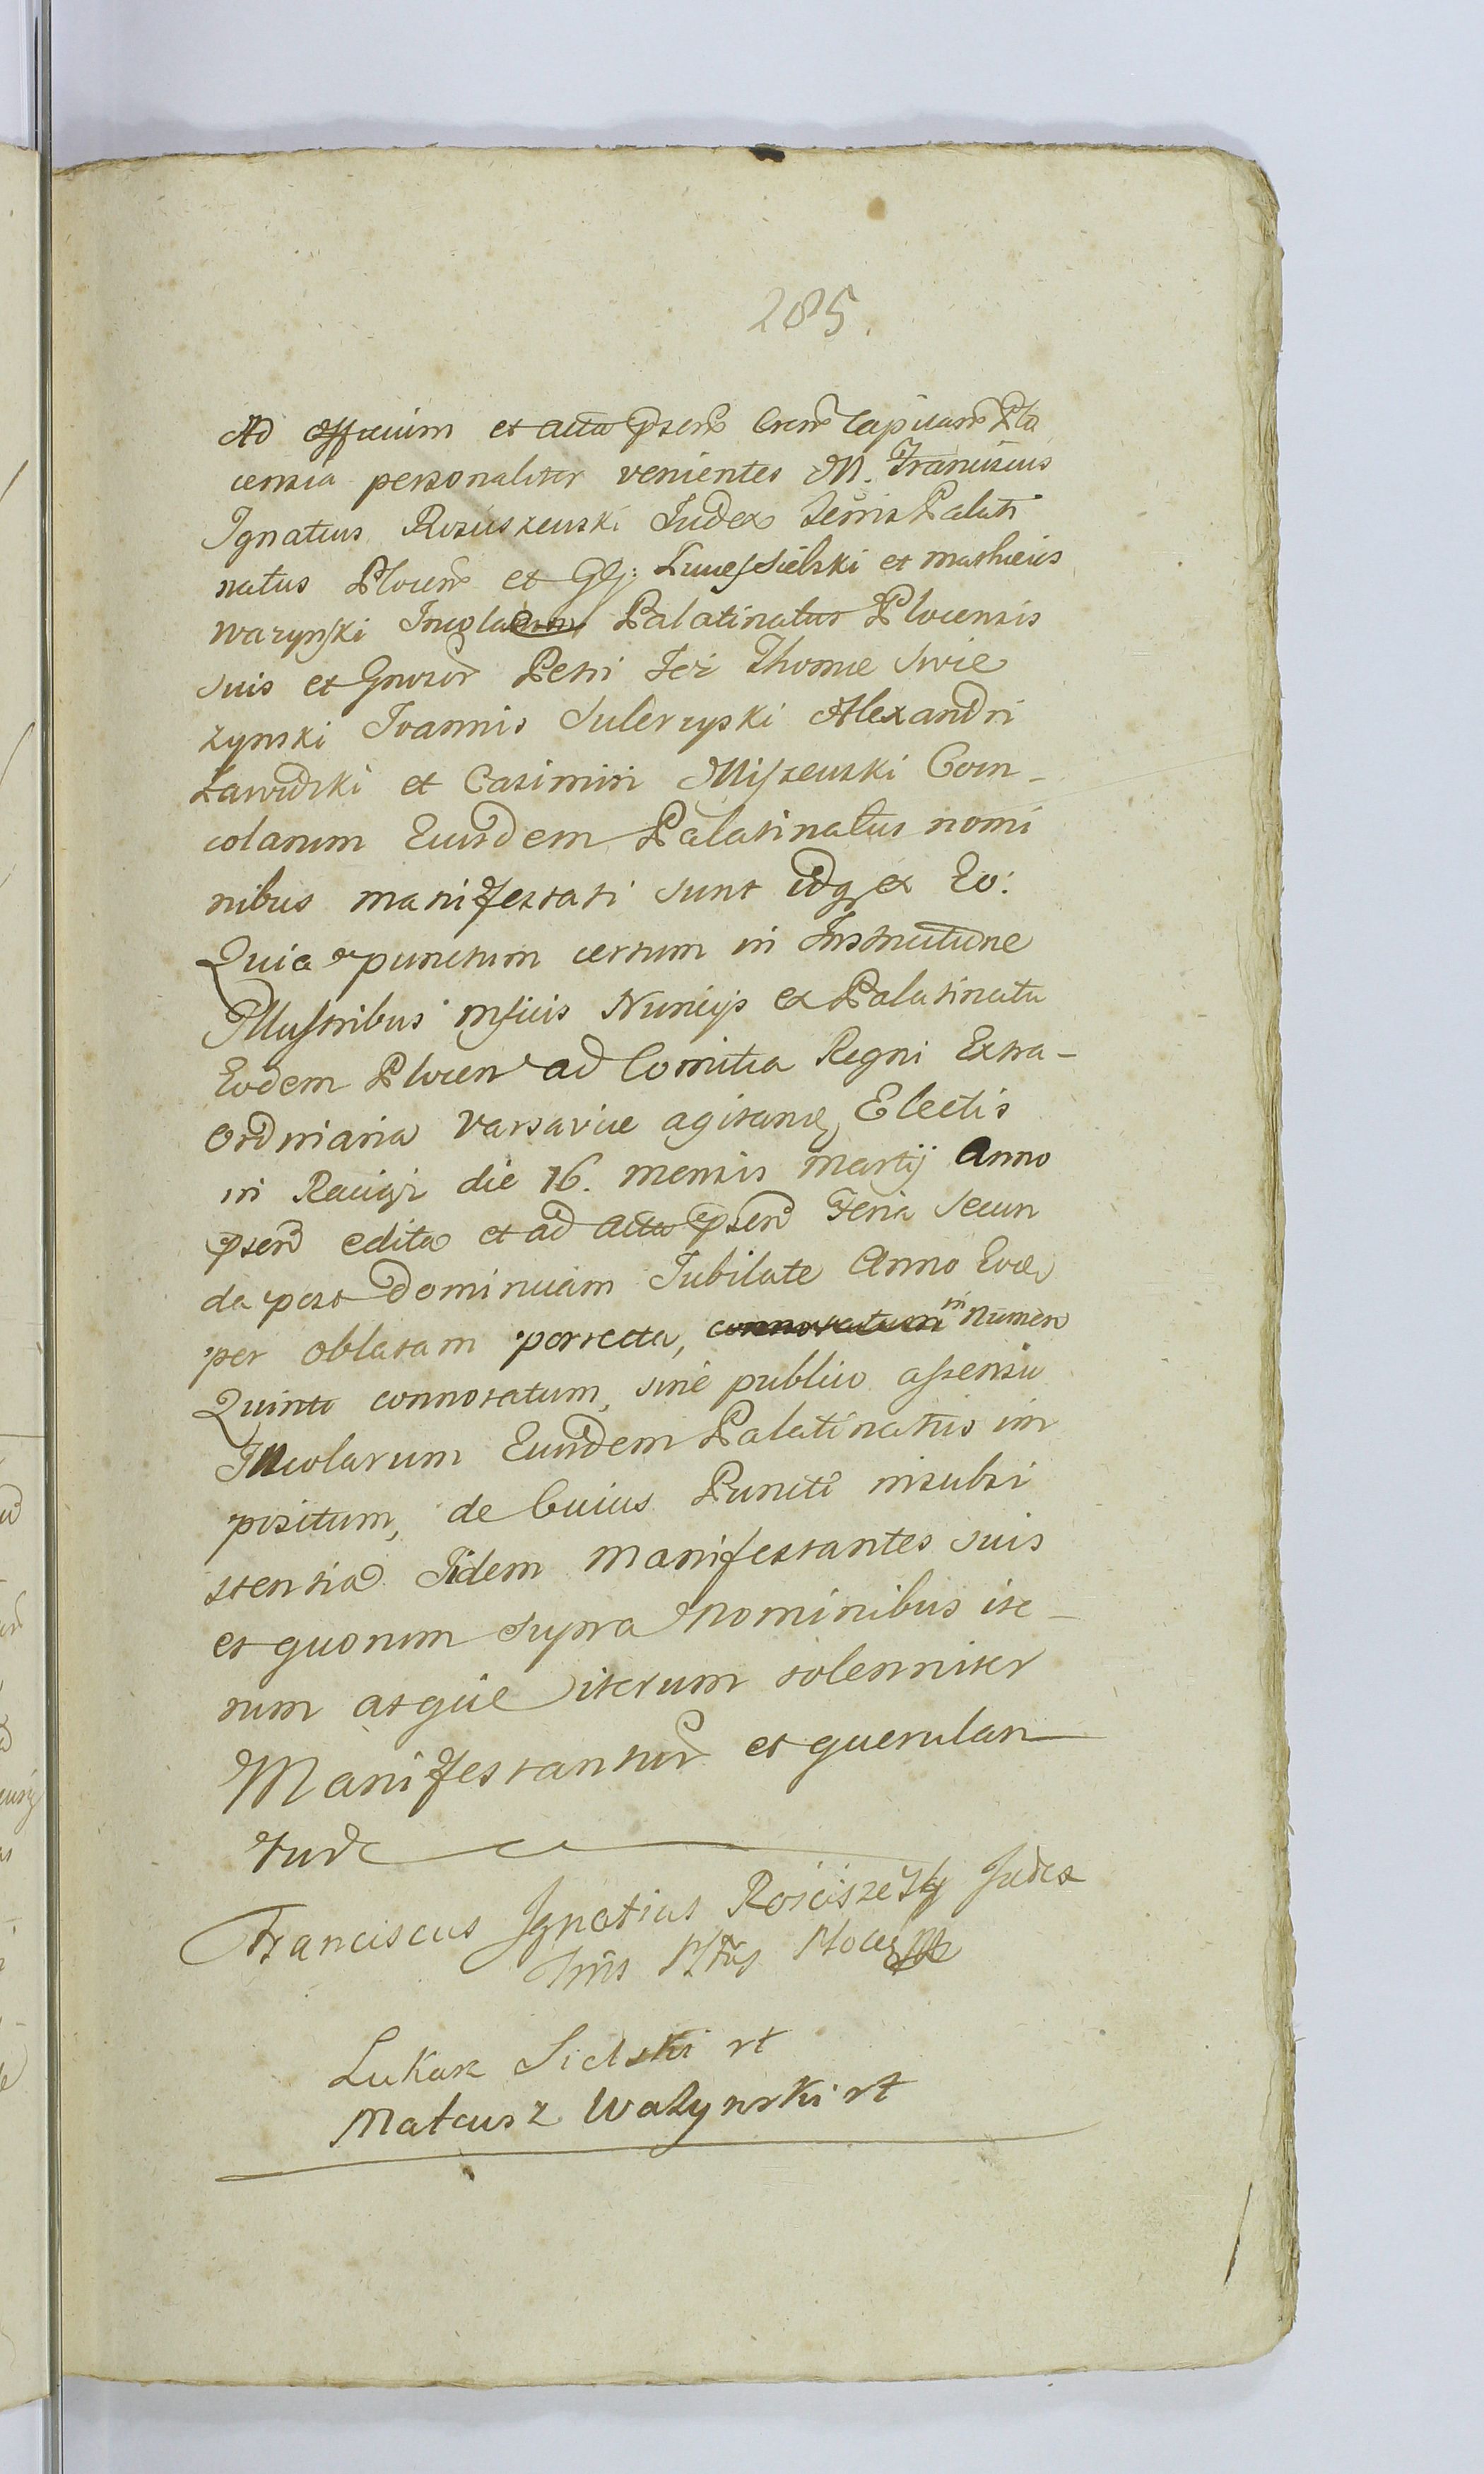 205.
Ad officium et acta pñsen Cren Capitane Plo
censia personaliter venientes M. Franciscus
Ignatius Rosciszewski Judex Terris Palati
natus Plocen et GG: Lucas Sielski et Matheus
Wazynski Incolae Palatinatus Plocensis
suis et Gnrosor Petri Thomae Swie
zynski Joannis Sulerzyski Alexandri
Zawidzki et Casimiri Miszewski Coin-
colarum Eiusdem Palatinatus nomi
nibus manifestati sunt idq ex Eo:
Quia punctum certum in Instructione
Illustribus mficis Nuncijs ex Palatinatu
Eodem Plocen ad Comitia Regni Extra-
Ordinaria Varsaviae agitan Electis
in Raciąż die 16. mensis Martij Anno
psen edita et ad acta psen Feria secun
da post Dominicam Jubilate Anno Eod
per oblatam porrecta, connotatum in Numero
Quinto connotatum, sine publico assensu
Incolarum Eiusdem Palatinatus im
positum, de Cuius Puncti insubsi
stentia Iidem Manifestantes suis
et quorum supra Nominibus ite-
rum atque iterum solenniter
Manifestantur et querulan
tur
Franciscus Ignatius Rościszewsky Judex
Tris Pltus Plocen
Lukasz Sielski
Mateusz Wazynski